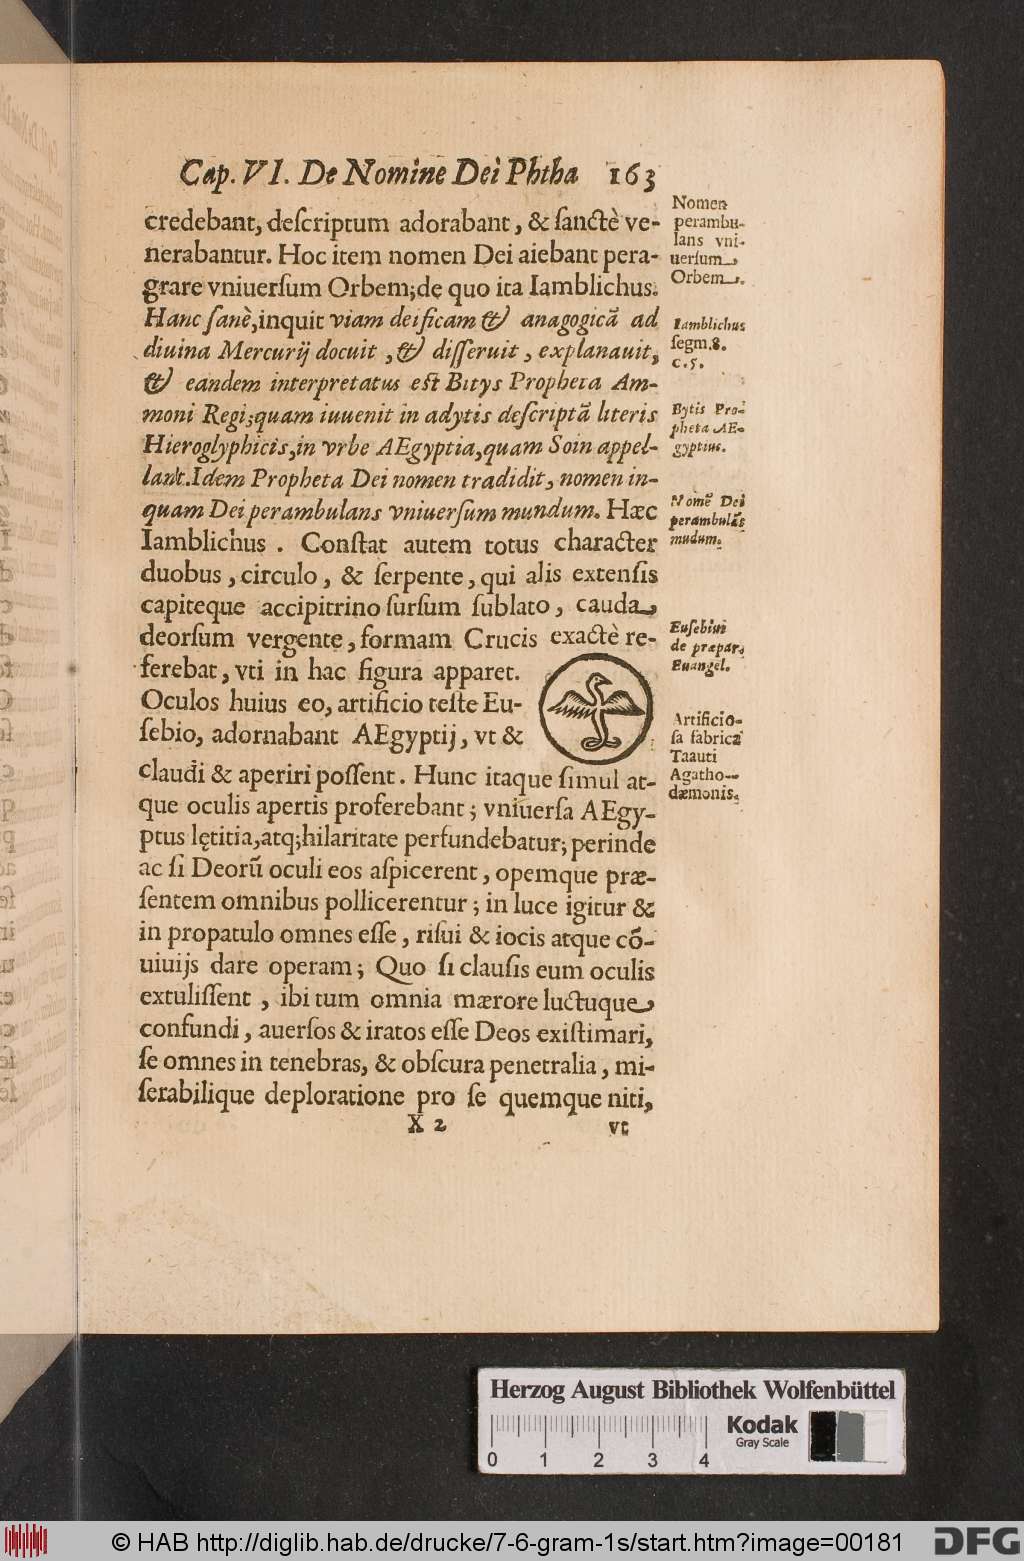 Cap. VI. De Nomine Dei Phtha 163
credebant, deſcriptum adorabant, & ſanctè ve-
nerabantur. Hoc item nomen Dei aiebant pera-
grare vniuerſum Orbem; de quo ita Iamblichus.
Hanc ſanè, inquit viam deificam & anagogicã ad
diuina Mercurij docuit, & diſſeruit, explanauit,
& eandem interpretatus eſt Bitys Propheta Am-
moni Regi; quam iuuenit in adytis deſcriptã literis
Hieroglyphicis, in vrbe AEgyptia, quam Soin appel-
lant. Idem Propheta Dei nomen tradidit, nomen in-
quam Dei perambulans vniuerſum mundum. Hæc
Iamblichus. Conſtat autem totus character
duobus, circulo, & ſerpente, qui alis extenſis
capiteque accipitrino ſurſum ſublato, cauda
deorſum vergente, formam Crucis exactè re-
ferebat, vti in hac figura apparet.
Oculos huius eo, artificio teſte Eu-
ſebio, adornabant AEgyptij, vt &
claudi & aperiri poſſent. Hunc itaque ſimul at-
que oculis apertis proferebant; vniuerſa AEgy-
ptus lętitia, atq; hilaritate perfundebatur; perinde
ac ſi Deorũ oculi eos aſpicerent, opemque præ-
ſentem omnibus pollicerentur; in luce igitur &
in propatulo omnes eſſe, riſui & iocis atque cõ-
uiuijs dare operam; Quo ſi clauſis eum oculis
extuliſſent, ibi tum omnia mærore luctuque
confundi, auerſos & iratos eſſe Deos exiſtimari,
ſe omnes in tenebras, & obſcura penetralia, mi-
ſerabilique deploratione pro ſe quemque niti,
X 2 vt
Nomen
perambu-
lans vni-
uerſum
Orbem.
Iamblichus
ſegm. 8.
c. 5.
Bytis Pro-
pheta AE-
gyptius.
Nomẽ Dei
perambulãs
mũdum.
Euſebius
de præpar.
Euangel.
Artificio-
ſa fabrica
Taauti
Agatho-
dæmonis.
Herzog August Bibliothek Wolfenbüttel
Kodak
Gray Scale
0 1 2 3 4
© HAB http://diglib.hab.de/drucke/7-6-gram-1s/start.htm?image=00181
DFG